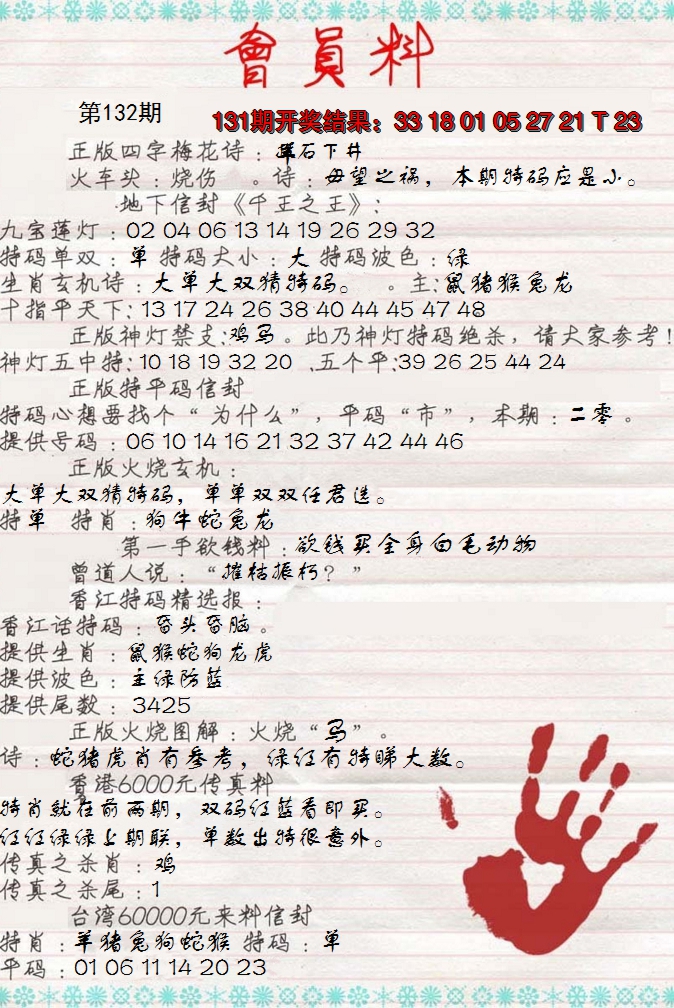 會員料
第132期
131期开奖结果：33 18 01 05 27 21 T 23
正版四字梅花诗：落石下井
火车头：烧伤 。诗：毋望之祸，本期特码应是小。
地下信封《千王之王》：
九宝莲灯：02 04 06 13 14 19 26 29 32
特码单双：单 特码大小：大 特码波色：绿
生肖玄机诗：大单大双猜特码。 。主：鼠猪猴兔龙
十指平天下：13 17 24 26 38 40 44 45 47 48
正版神灯禁支：鸡马。此乃神灯特码绝杀，请大家参考！
神灯五中特：10 18 19 32 20 、五个平：39 26 25 44 24
正版特平码信封
特码心想要找个“为什么”，平码“市”，本期：二零。
提供号码：06 10 14 16 21 32 37 42 44 46
正版火烧玄机：
大单大双猜特码，单单双双任君选。
特单 特肖：狗牛蛇兔龙
第一手欲钱料：欲钱买全身白毛动物
曾道人说：“摧枯振朽？”
香江特码精选报：
香江话特码：昏头昏脑。
提供生肖：鼠猴蛇狗龙虎
提供波色：主绿防蓝
提供尾数：3425
正版火烧图解：火烧“马”。
诗：蛇猪虎肖有参考，绿红有特睇大数。
香港6000元传真料
特肖就在前两期，双码红蓝看即买。
红红绿绿上期联，单数出特很意外。
传真之杀肖：鸡
传真之杀尾：1
台湾60000元来料信封
特肖：羊猪兔狗蛇猴 特码：单
平码：01 06 11 14 20 23